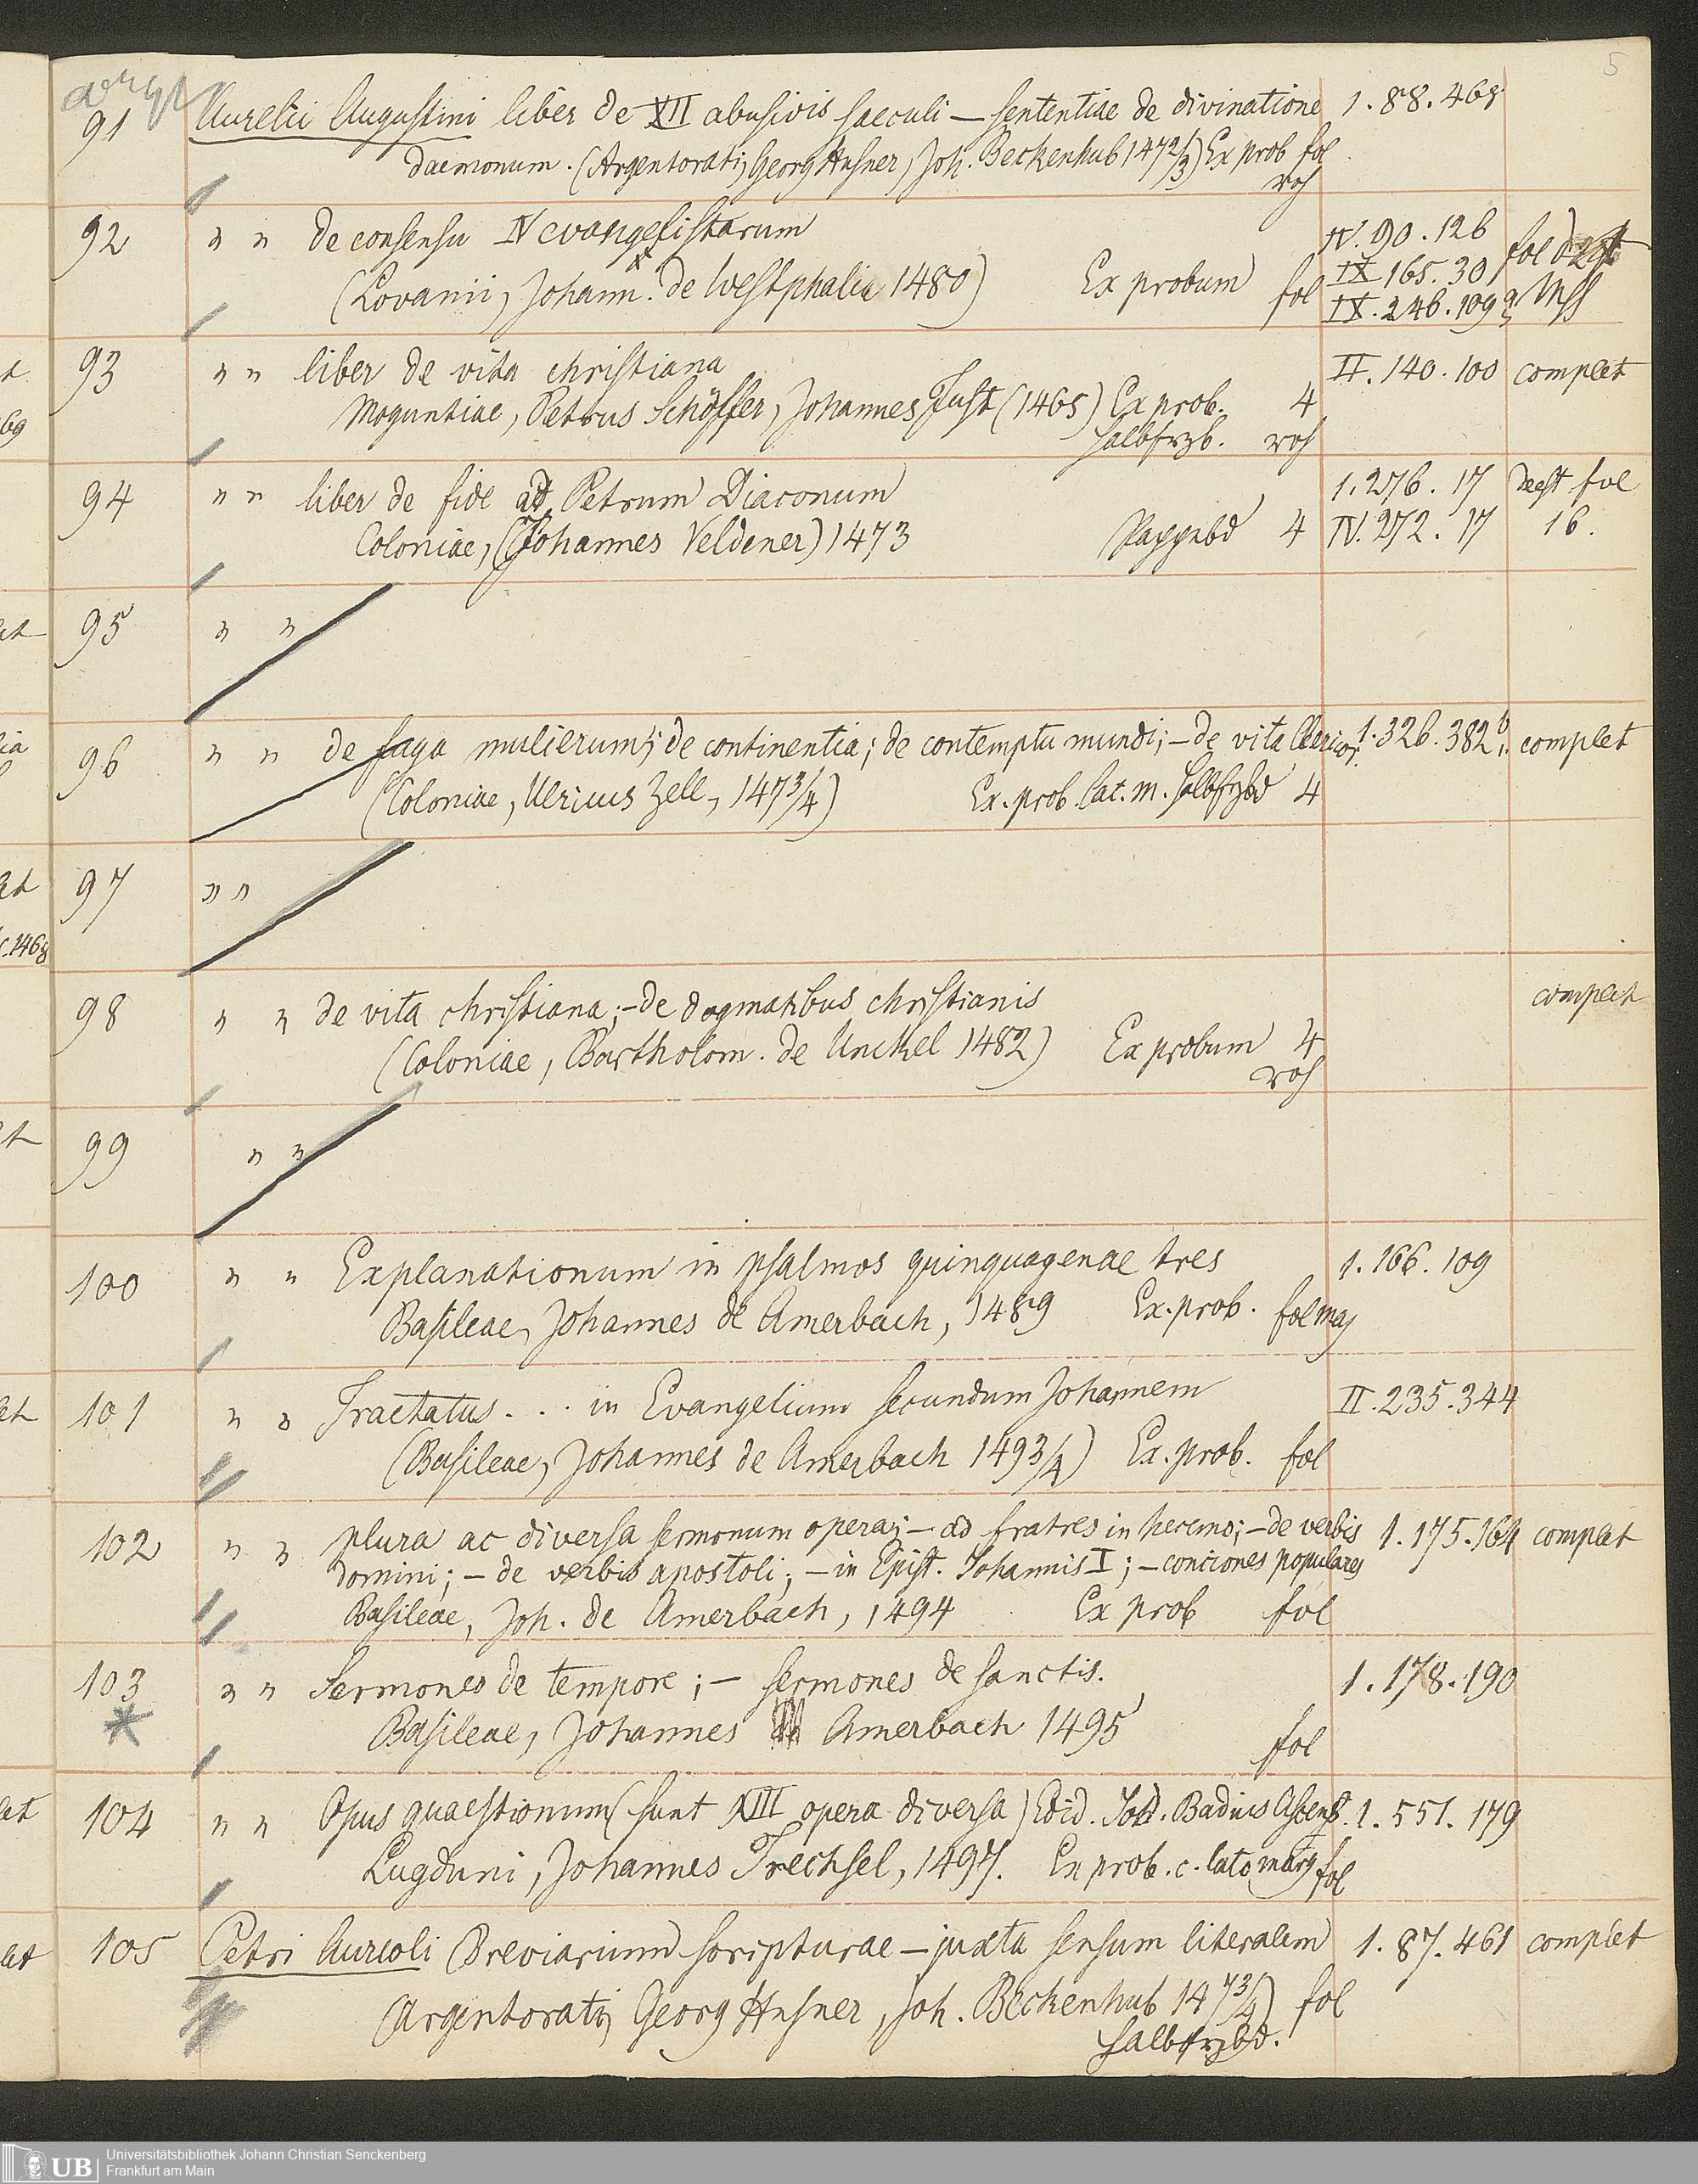 5
91 Aurelii Augustini liber de XII abusivis saeculi — sententiae de divinatione 1. 88. 468
daemonum. (Argentorati, Georg Husner, Joh. Beckenhub 1472/3) Ex prob fol
roh
92 " " de consensu IV evangelistarum IV. 90. 126
(Lovanii, Johann. de Westphalia 1480) Ex probum fol IX 165. 30 fol
IX. 246. 109
93 " " liber de vita christiana II. 140. 100 complet
Moguntiae, Petrus Schöffer, Johannes Fust (1465) Ex prob. 4
Halbfrzb. roh
94 " " liber de fide ad Petrum Diaconum 1. 276. 17 deest fol
Coloniae, (Johannes Veldener) 1473 Pappebd 4 IV. 272. 17 16.
95 " "
96 " " de fuga mulierum; de continentia; de contemptu mundi; – de vita Clericor. 1. 326. 382b. complet
(Coloniae, Ulricus Zell, 1473/4) Ex. prob. lat. m. Halbfrzbd 4
97 " "
98 " " de vita christiana; – de dogmatibus christianis complet
(Coloniae, Bartholom. de Unckel 1482) Ex probum 4
roh
99 " "
100 " " Explanationum in psalmos quinquagenae tres 1. 166. 109
Basileae, Johannes de Amerbach, 1489 Ex. prob. fol maj
101 " " Tractatus . . . in Evangelium secundum Johannem II. 235. 344
(Basileae, Johannes de Amerbach 1493/4) Ex. prob. fol
102 " " plura ac diversa sermonum opera; – ad fratres in heremo; – de verbis 1. 175. 164 complet
domini; – de verbis apostoli; – in Epist. Johannis I; – conciones populares
Basileae, Joh. de Amerbach, 1494 Ex prob fol
103 " " Sermones de tempore; – sermones de sanctis. 1. 178. 190
* Basileae, Johannes Amerbach 1495 fol
104 " " Opus quaestionum (sunt XIII opera diversa) Edid. Jod. Badius Ascens. 1. 551. 179
Lugduni, Johannes Trechsel, 1497. Ex prob. c. lato marg fol
105 Petri Aureoli Breviarium scripturae – juxta sensum literalem 1. 87. 461 complet
(Argentorati, Georg Husner, Joh. Beckenhub 1473/4) fol
Halbfrzbd.
UB Universitätsbibliothek Johann Christian Senckenberg
Frankfurt am Main